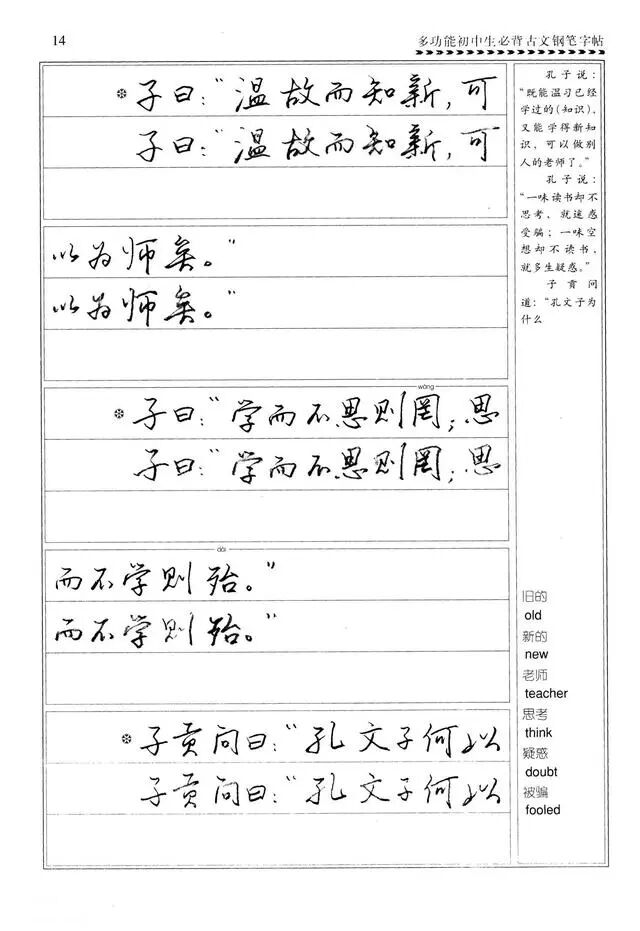 14
多功能初中生必背古文钢笔字帖
子曰：“温故而知新，可
子曰：“温故而知新，可
以为师矣。”
以为师矣。”
wǎng
子曰：“学而不思则罔；思
子曰：“学而不思则罔；思
dài
而不学则殆。”
而不学则殆。”
子贡问曰：“孔文子何以
子贡问曰：“孔文子何以
孔子说：
“既能温习已经
学过的（知识），
又能学得新知
识，可以做别
人的老师了。”
孔子说：
“一味读书却不
思考、就迷惑
受骗；一味空
想却不读书，
就多生疑惑。”
子贡问
道：“孔文子为
什么
旧的
old
新的
new
老师
teacher
思考
think
疑惑
doubt
被骗
fooled